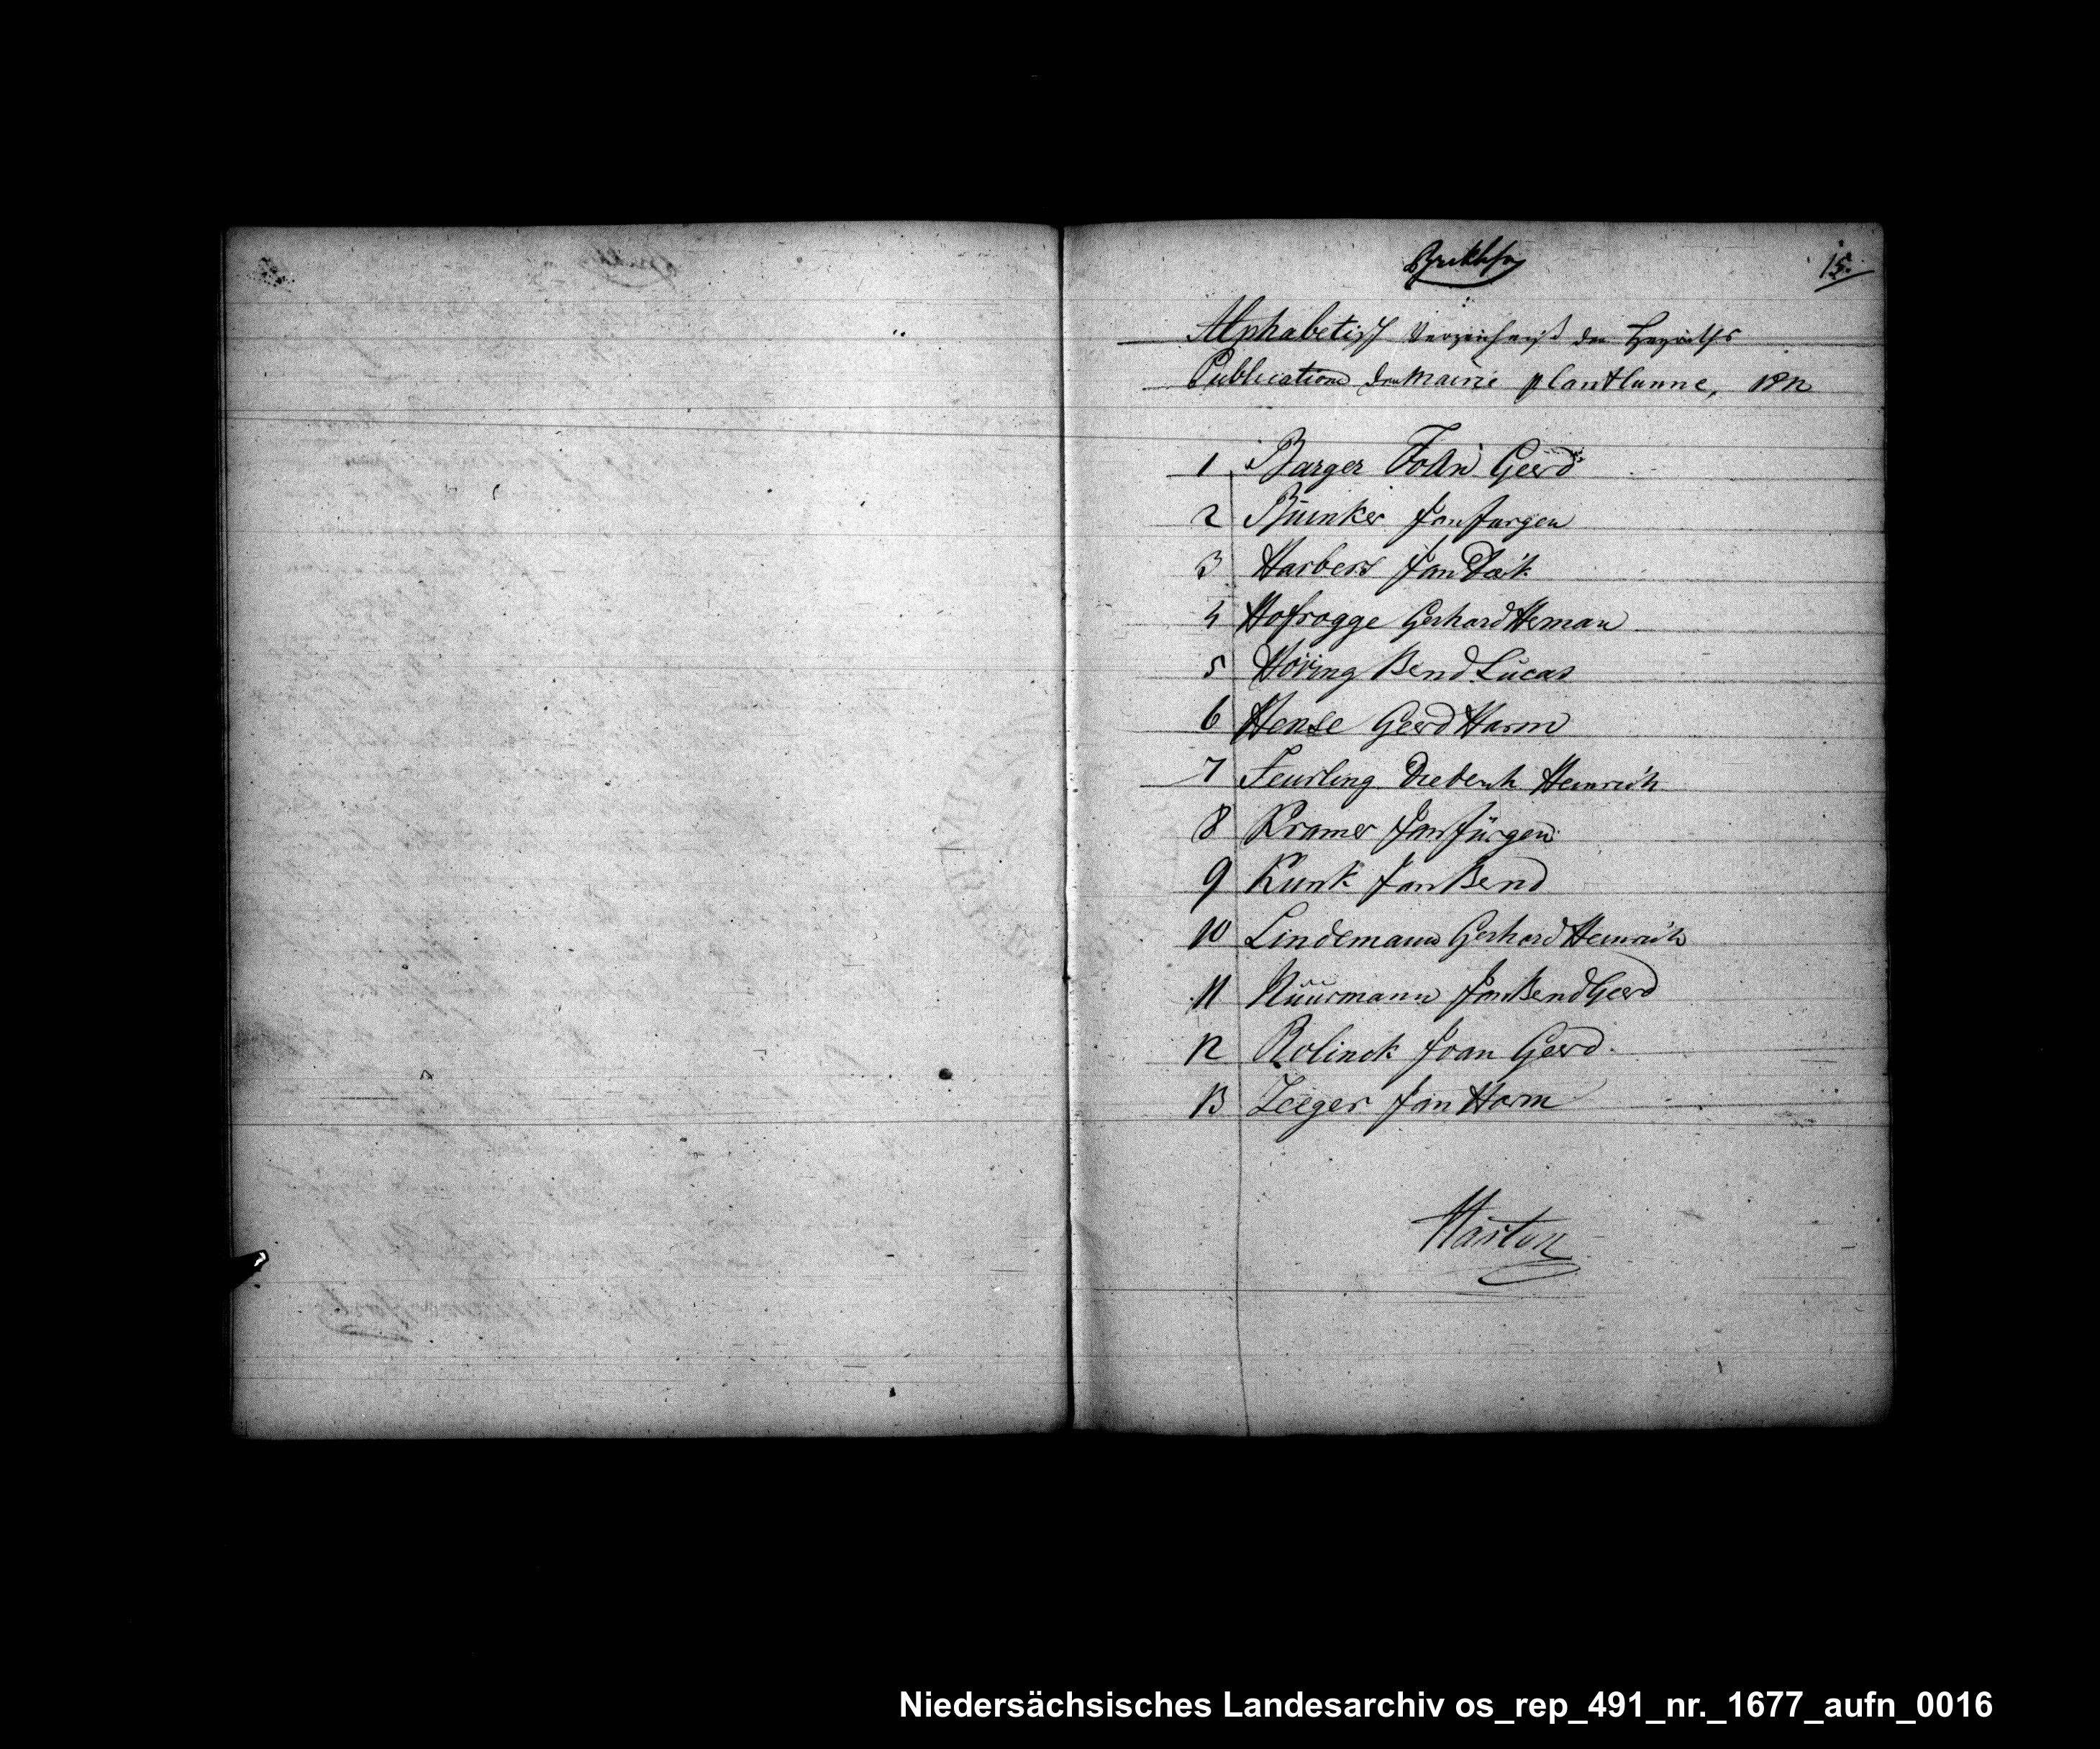 15.
Alphabetisch Verzeichniß der Heyraths
Publicationen der Mairie plantlunne, 1812
1 Barger Joan Gerd
2 Büinker Jan Jurgen
3 Harbers Jan Dirk
4 Hofrogge Gerhard Herman
5 Höving Bend Lucas
6 Hense Geerd Harm
7 Feurling Diederich Heinrich
8 Kramer Jan Jürgen
9 Kunk Jan Bend
10 Lindemann Gerhard Heinrich
11 Nüürmann Jan Bend Geerd
12 Rolinck Joan Geerd
13 Zeeger Jan Harm
Niedersächsisches Landesarchiv os_rep_491_nr._1677_aufn_0016